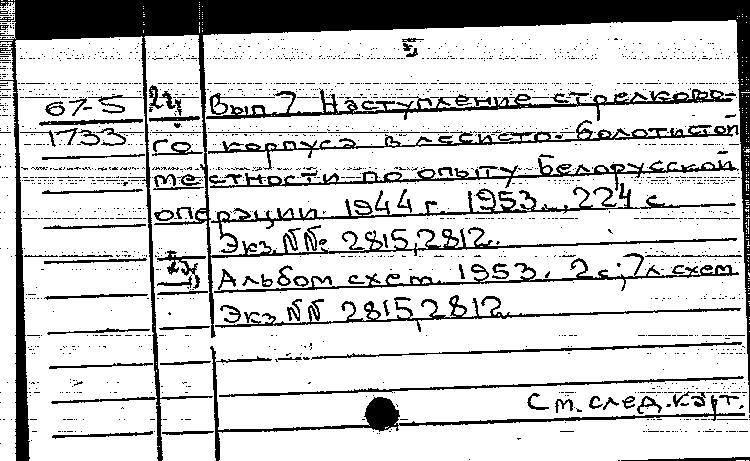 5
67-5 22) Вып.7. Наступление стрелково-
1733 го корпуса в лесисто-болотистой
местности по опыту Белорусской
операции 1944 г. 1953., 224 с.
Экз. №№ 2815,2812.
23) Альбом схем. 1953. 2с.; 7л схем
Экз. №№ 2815,2812.
См.след.карт.